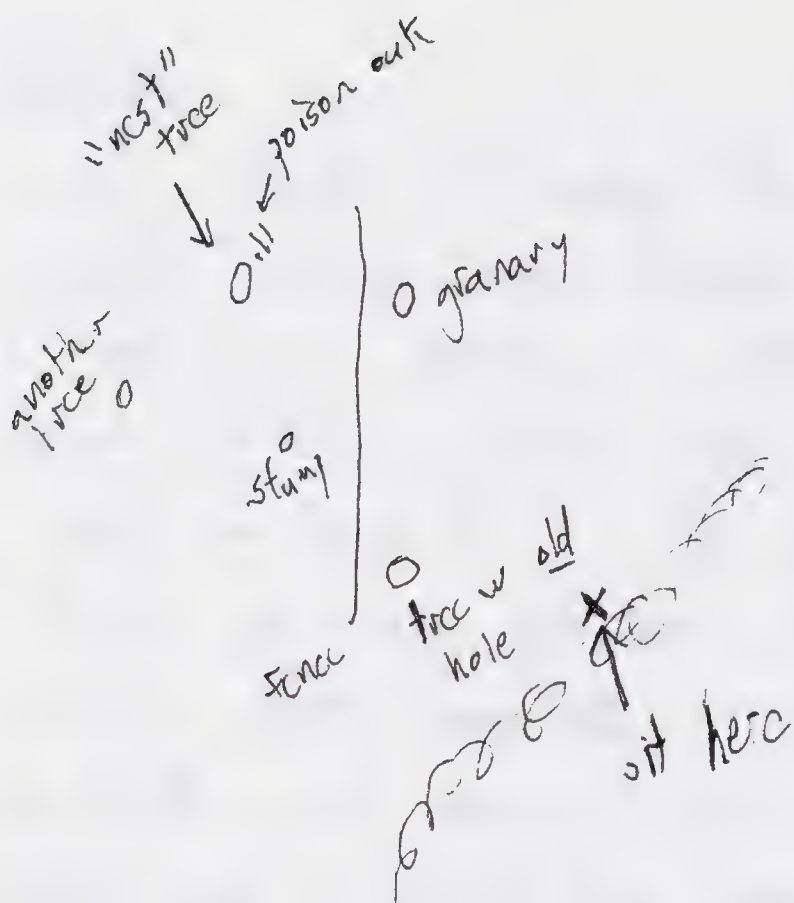 "nest"
tree
poison oak
granary
another
tree
stump
tree w old
hole
fence
sit here